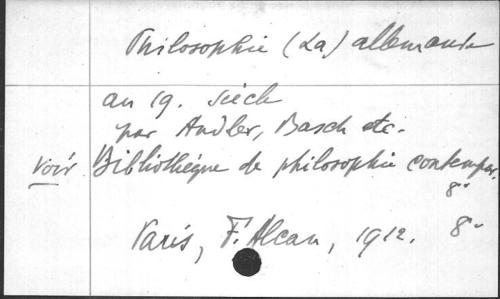 Philosophie (La) allemande
au 19. siècle
par Andler, Basch etc.
voir Bibliothèque de philosophie contempor.
8°
Paris, F. Alcan, 1912. 8°